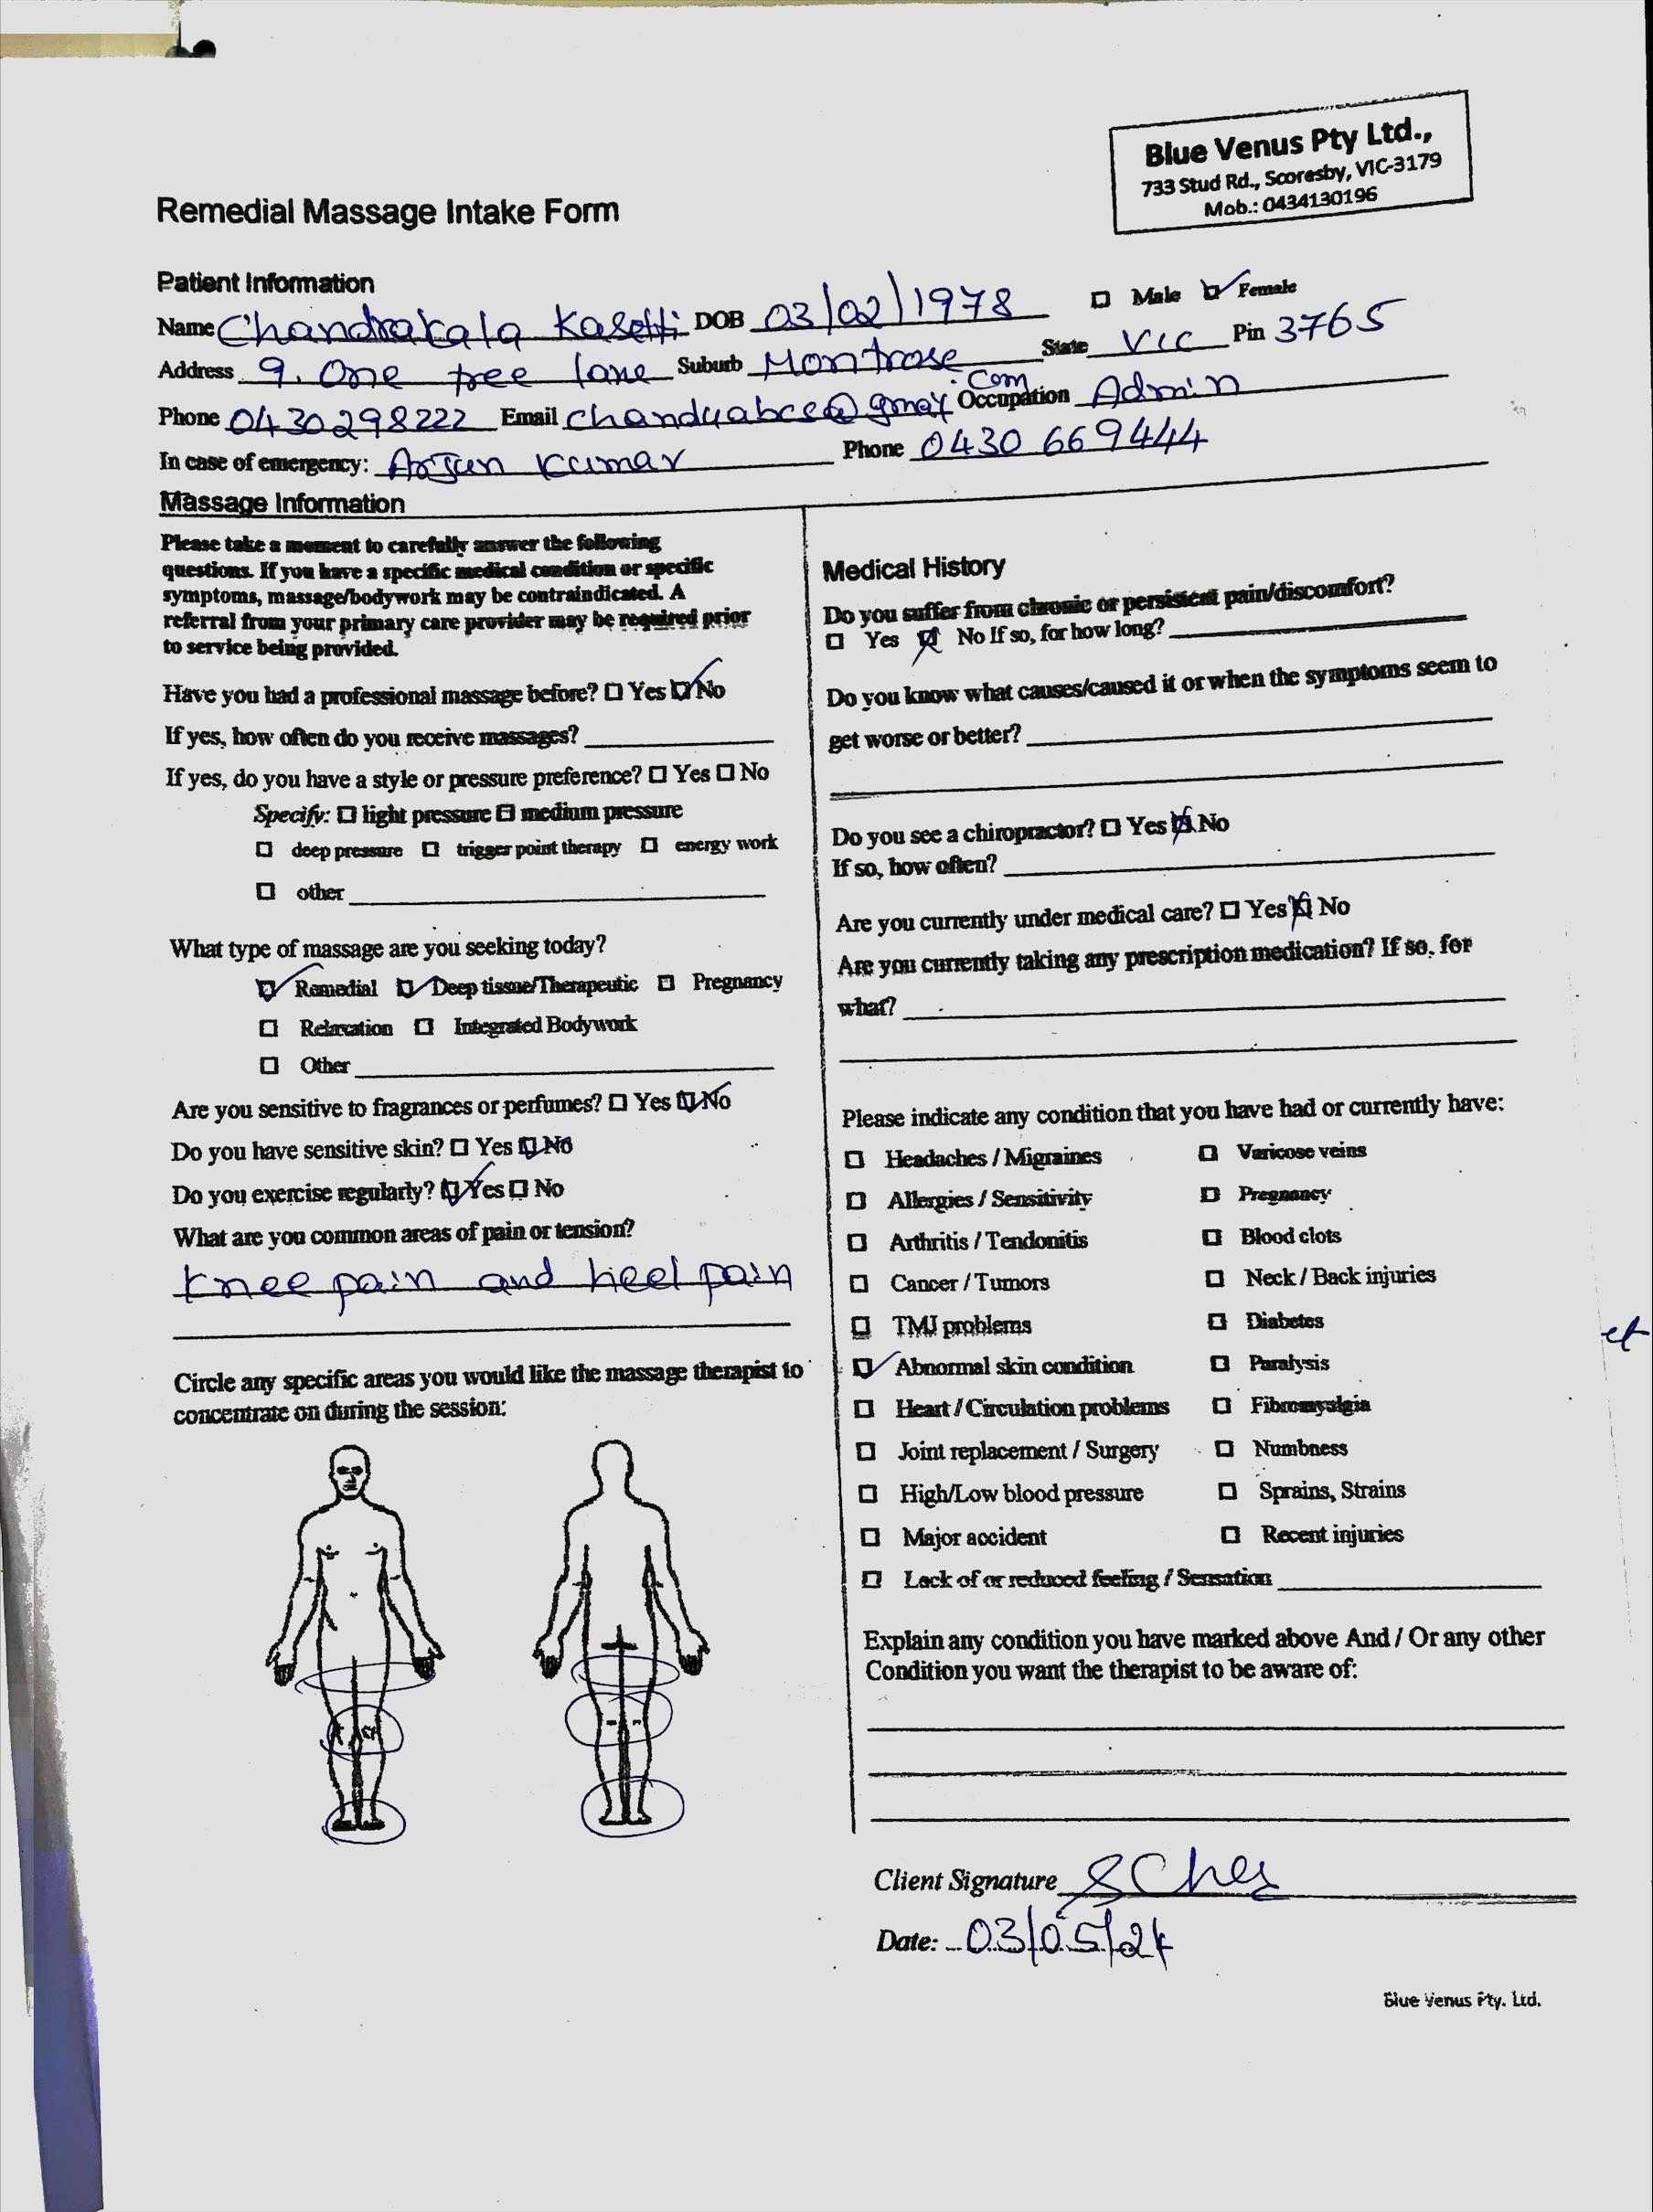 Blue Venus Pty Ltd.,
733 Stud Rd., Scoresby, VIC-3179
Mob.: 0434130196
Remedial Massage Intake Form
Patient Information
Name Chandrakala Kasetti DOB 03/02/1978 Male Female
Address 9. One tree lane Suburb Montrose State Vic Pin 3765
Phone 0430298222 Email @gmail.com Occupation Admin
In case of emergency: Arjun Kumar Phone 0430 669444
Massage Information
Please take a moment to carefully answer the following
questions. If you have a specific medical condition or specific
symptoms, massage/bodywork may be contraindicated. A
referral from your primary care provider may be required prior
to service being provided.
Have you had a professional massage before? Yes No
If yes, how often do you receive massages?
If yes, do you have a style or pressure preference? Yes No
Specify: light pressure medium pressure
deep pressure trigger point therapy energy work
other
What type of massage are you seeking today?
Remedial Deep tissue/Therapeutic Pregnancy
Relaxation Integrated Bodywork
Other
Are you sensitive to fragrances or perfumes? Yes No
Do you have sensitive skin? Yes No
Do you exercise regularly? Yes No
What are you common areas of pain or tension?
knee pain and heel pain
Circle any specific areas you would like the massage therapist to
concentrate on during the session:
Medical History
Do you suffer from chronic or persistent pain/discomfort?
Yes No If so, for how long?
Do you know what causes/caused it or when the symptoms seem to
get worse or better?
Do you see a chiropractor? Yes No
If so, how often?
Are you currently under medical care? Yes No
Are you currently taking any prescription medication? If so, for
what?
Please indicate any condition that you have had or currently have:
Headaches / Migraines Varicose veins
Allergies / Sensitivity Pregnancy
Arthritis / Tendonitis Blood clots
Cancer / Tumors Neck / Back injuries
TMJ problems Diabetes
Abnormal skin condition Paralysis
Heart / Circulation problems Fibromyalgia
Joint replacement / Surgery Numbness
High/Low blood pressure Sprains, Strains
Major accident Recent injuries
Lack of or reduced feeling / Sensation
Explain any condition you have marked above And / Or any other
Condition you want the therapist to be aware of:
Client Signature
Date: 03/05/24
Blue Venus Pty. Ltd.